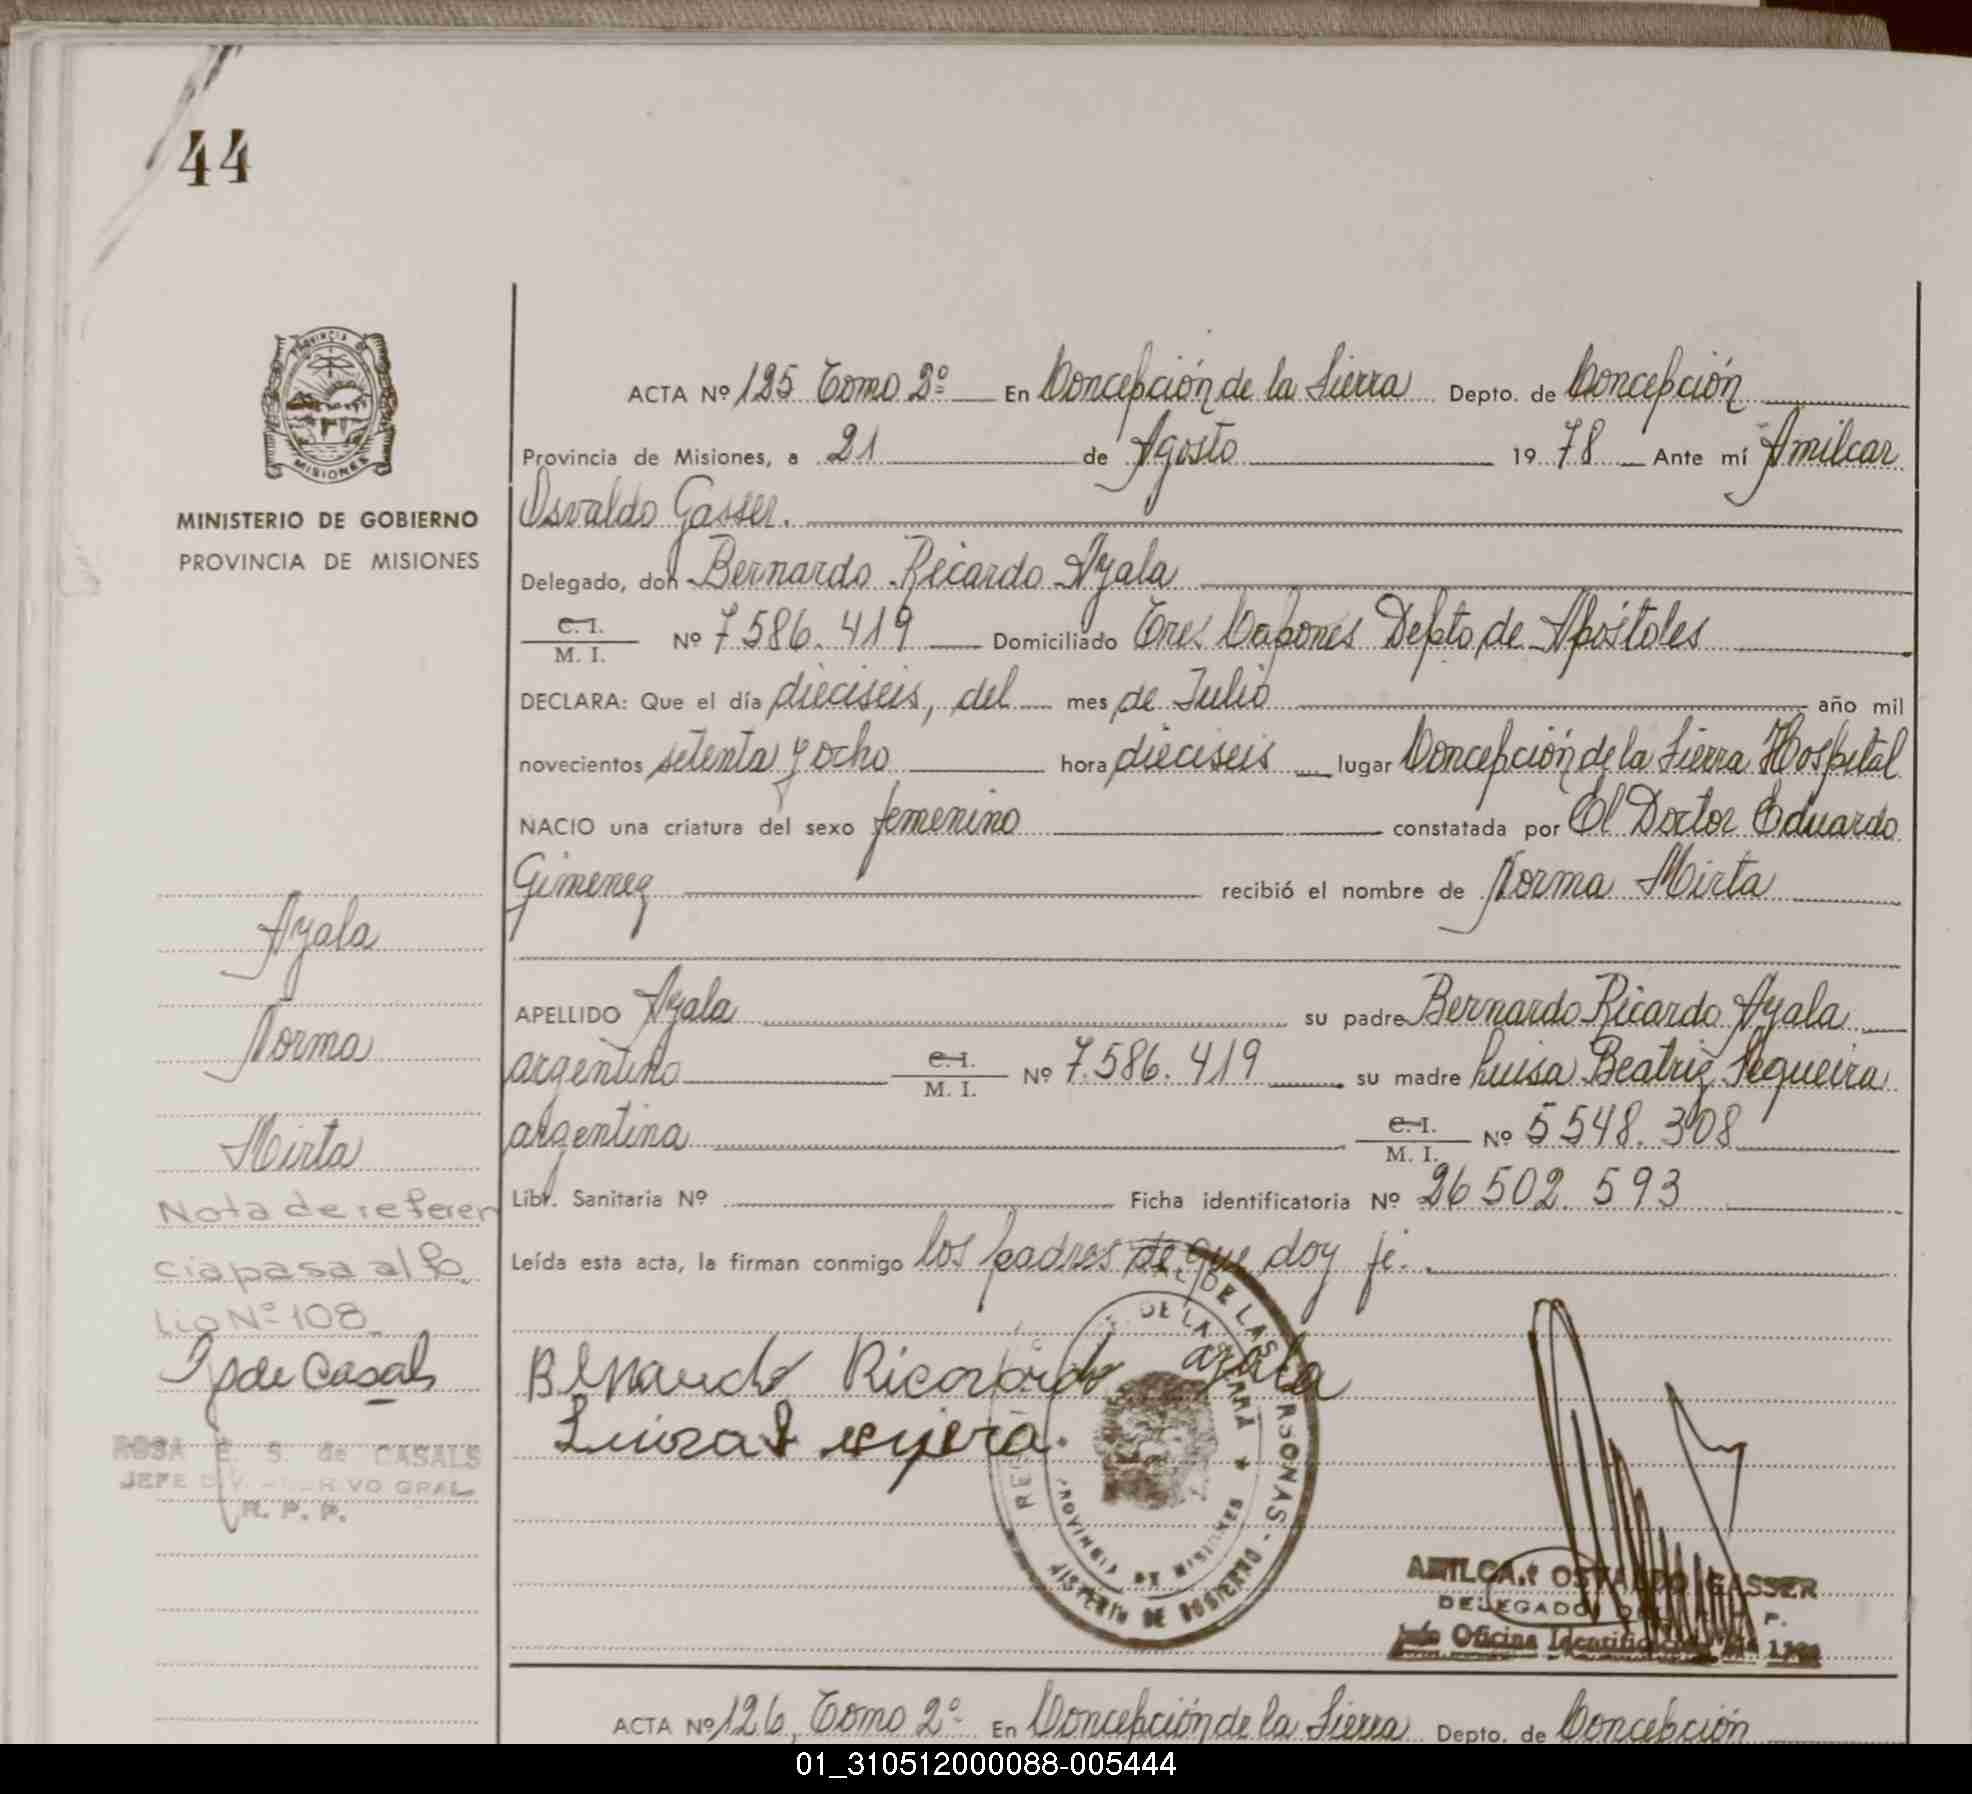 44
PROVINCIA DE
MISIONES
MINISTERIO DE GOBIERNO
PROVINCIA DE MISIONES
ACTA Nº 125 Tomo 2º En Concepción de la Sierra Depto. de Concepción
Provincia de Misiones, a 21 de Agosto 1978 Ante mí Amilcar
Osvaldo Gasser.
Delegado, don Bernardo Ricardo Ayala
C. I.
M. I. Nº 7.586.419 Domiciliado Tres Capones Depto de Apóstoles
DECLARA: Que el día dieciseis, del mes de Julio año mil
novecientos setenta y ocho hora dieciseis lugar Concepción de la Sierra Hospital
NACIO una criatura del sexo femenino constatada por El Doctor Eduardo
Gimenez recibió el nombre de Norma Mirta
APELLIDO Ayala su padre Bernardo Ricardo Ayala
argentino C. I. M. I. Nº 7.586.419 su madre Luisa Beatriz Sequeira
argentina C. I. M. I. Nº 5548.308
Libr. Sanitaria Nº Ficha identificatoria Nº 26502.593
Leída esta acta, la firman conmigo los padres de que doy fé.
Ayala
Norma
Mirta
Nota de referen
cia pasa al fo
lio Nº 108
de Casals
ROSA E. S. de CASALS
JEFE DIV. GRAL
R. P. P.
Ricardo
DE LAS PERSONAS - MINISTERIO DE GOBIERNO
PROVINCIA DE MISIONES
AMILCAR OSVALDO GASSER
DELEGADO
Oficina
ACTA Nº 126, Tomo 2º En Concepción de la Sierra Depto. de Concepción
01_310512000088-005444